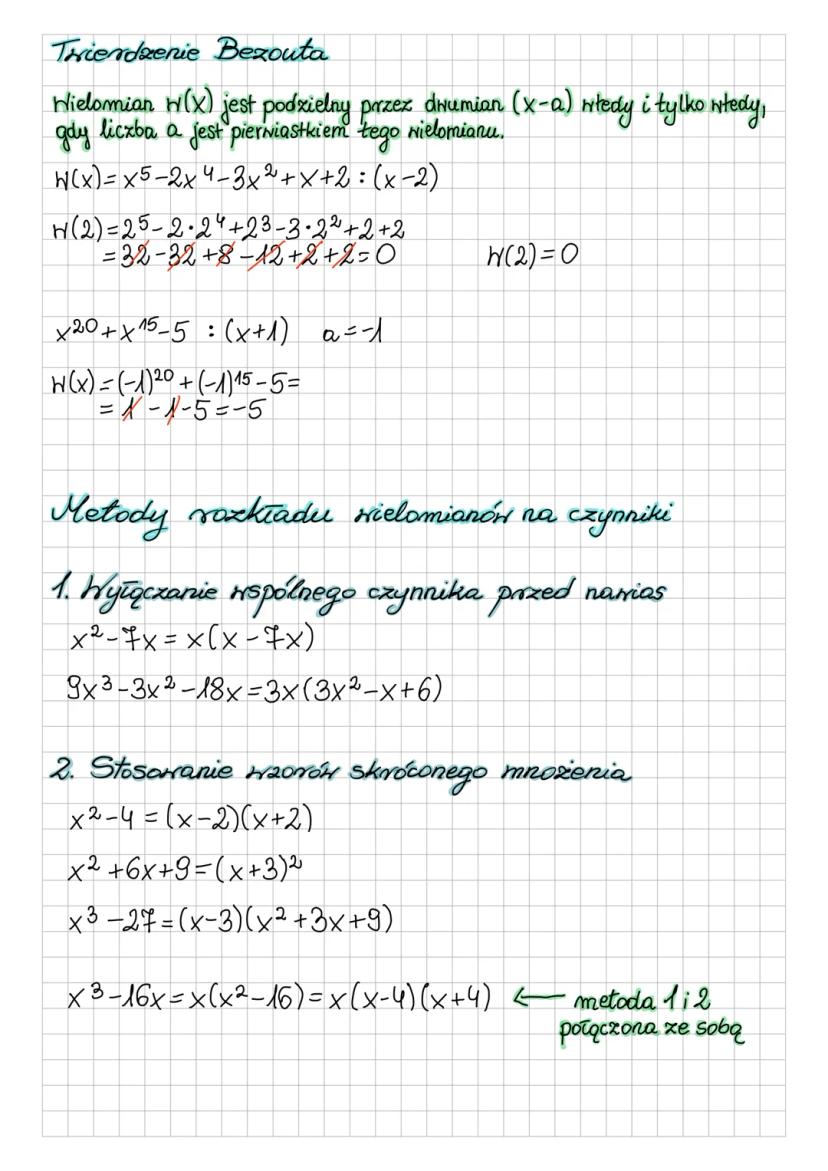 Twierdzenie Bezouta
Wielomian W(x) jest podzielny przez dwumian (x-a) wtedy i tylko wtedy,
gdy liczba a jest pierwiastkiem tego wielomianu.
W(x)=x⁵-2x⁴-3x²+x+2 : (x-2)
W(2)=2⁵-2·2⁴+2³-3·2²+2+2
=32-32+8-12+2+2=0 W(2)=0
x²⁰+x¹⁵-5 : (x+1) a=-1
W(x)=(-1)²⁰+(-1)¹⁵-5=
=1-1-5=-5
Metody rozkładu wielomianów na czynniki
1. Wyłączanie wspólnego czynnika przed nawias
x²-7x=x(x-7x)
9x³-3x²-18x=3x(3x²-x+6)
2. Stosowanie wzorów skróconego mnożenia
x²-4=(x-2)(x+2)
x²+6x+9=(x+3)²
x³-27=(x-3)(x²+3x+9)
x³-16x=x(x²-16)=x(x-4)(x+4) ← metoda 1 i 2
połączona ze sobą